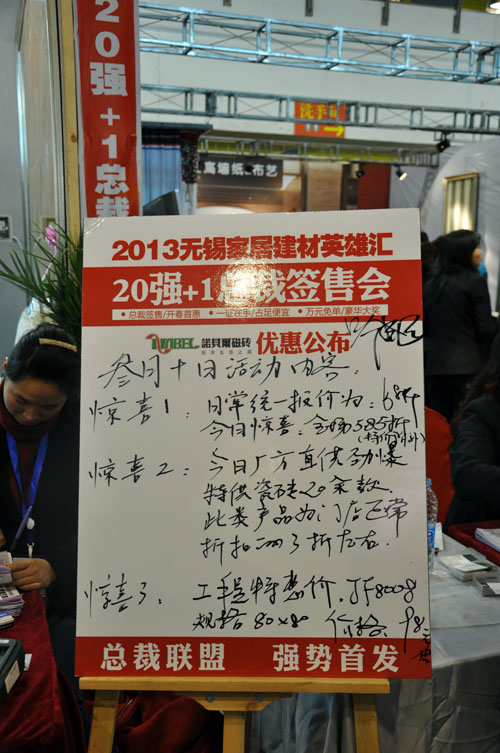 20强+1总裁
洗手间
高墙纸·布艺
2013无锡家居建材英雄汇
20强+1总裁签售会
• 总裁签售/开春首惠 • 一证在手/占足便宜 • 万元免单/豪华大奖
NOBEL 諾貝爾磁砖 优惠公布
叁月十日活动内容.
惊喜1: 日常统一报价为: 6.8折
今日惊喜: 全场5.85折
(特价除外)
惊喜2: 今日厂方直供劲爆
特供瓷砖20余款.
此类产品为门店正常
折扣的3折左右.
惊喜3: 工手是特惠价. JF80008
规格80x80 价格: 98.
总裁联盟 强势首发